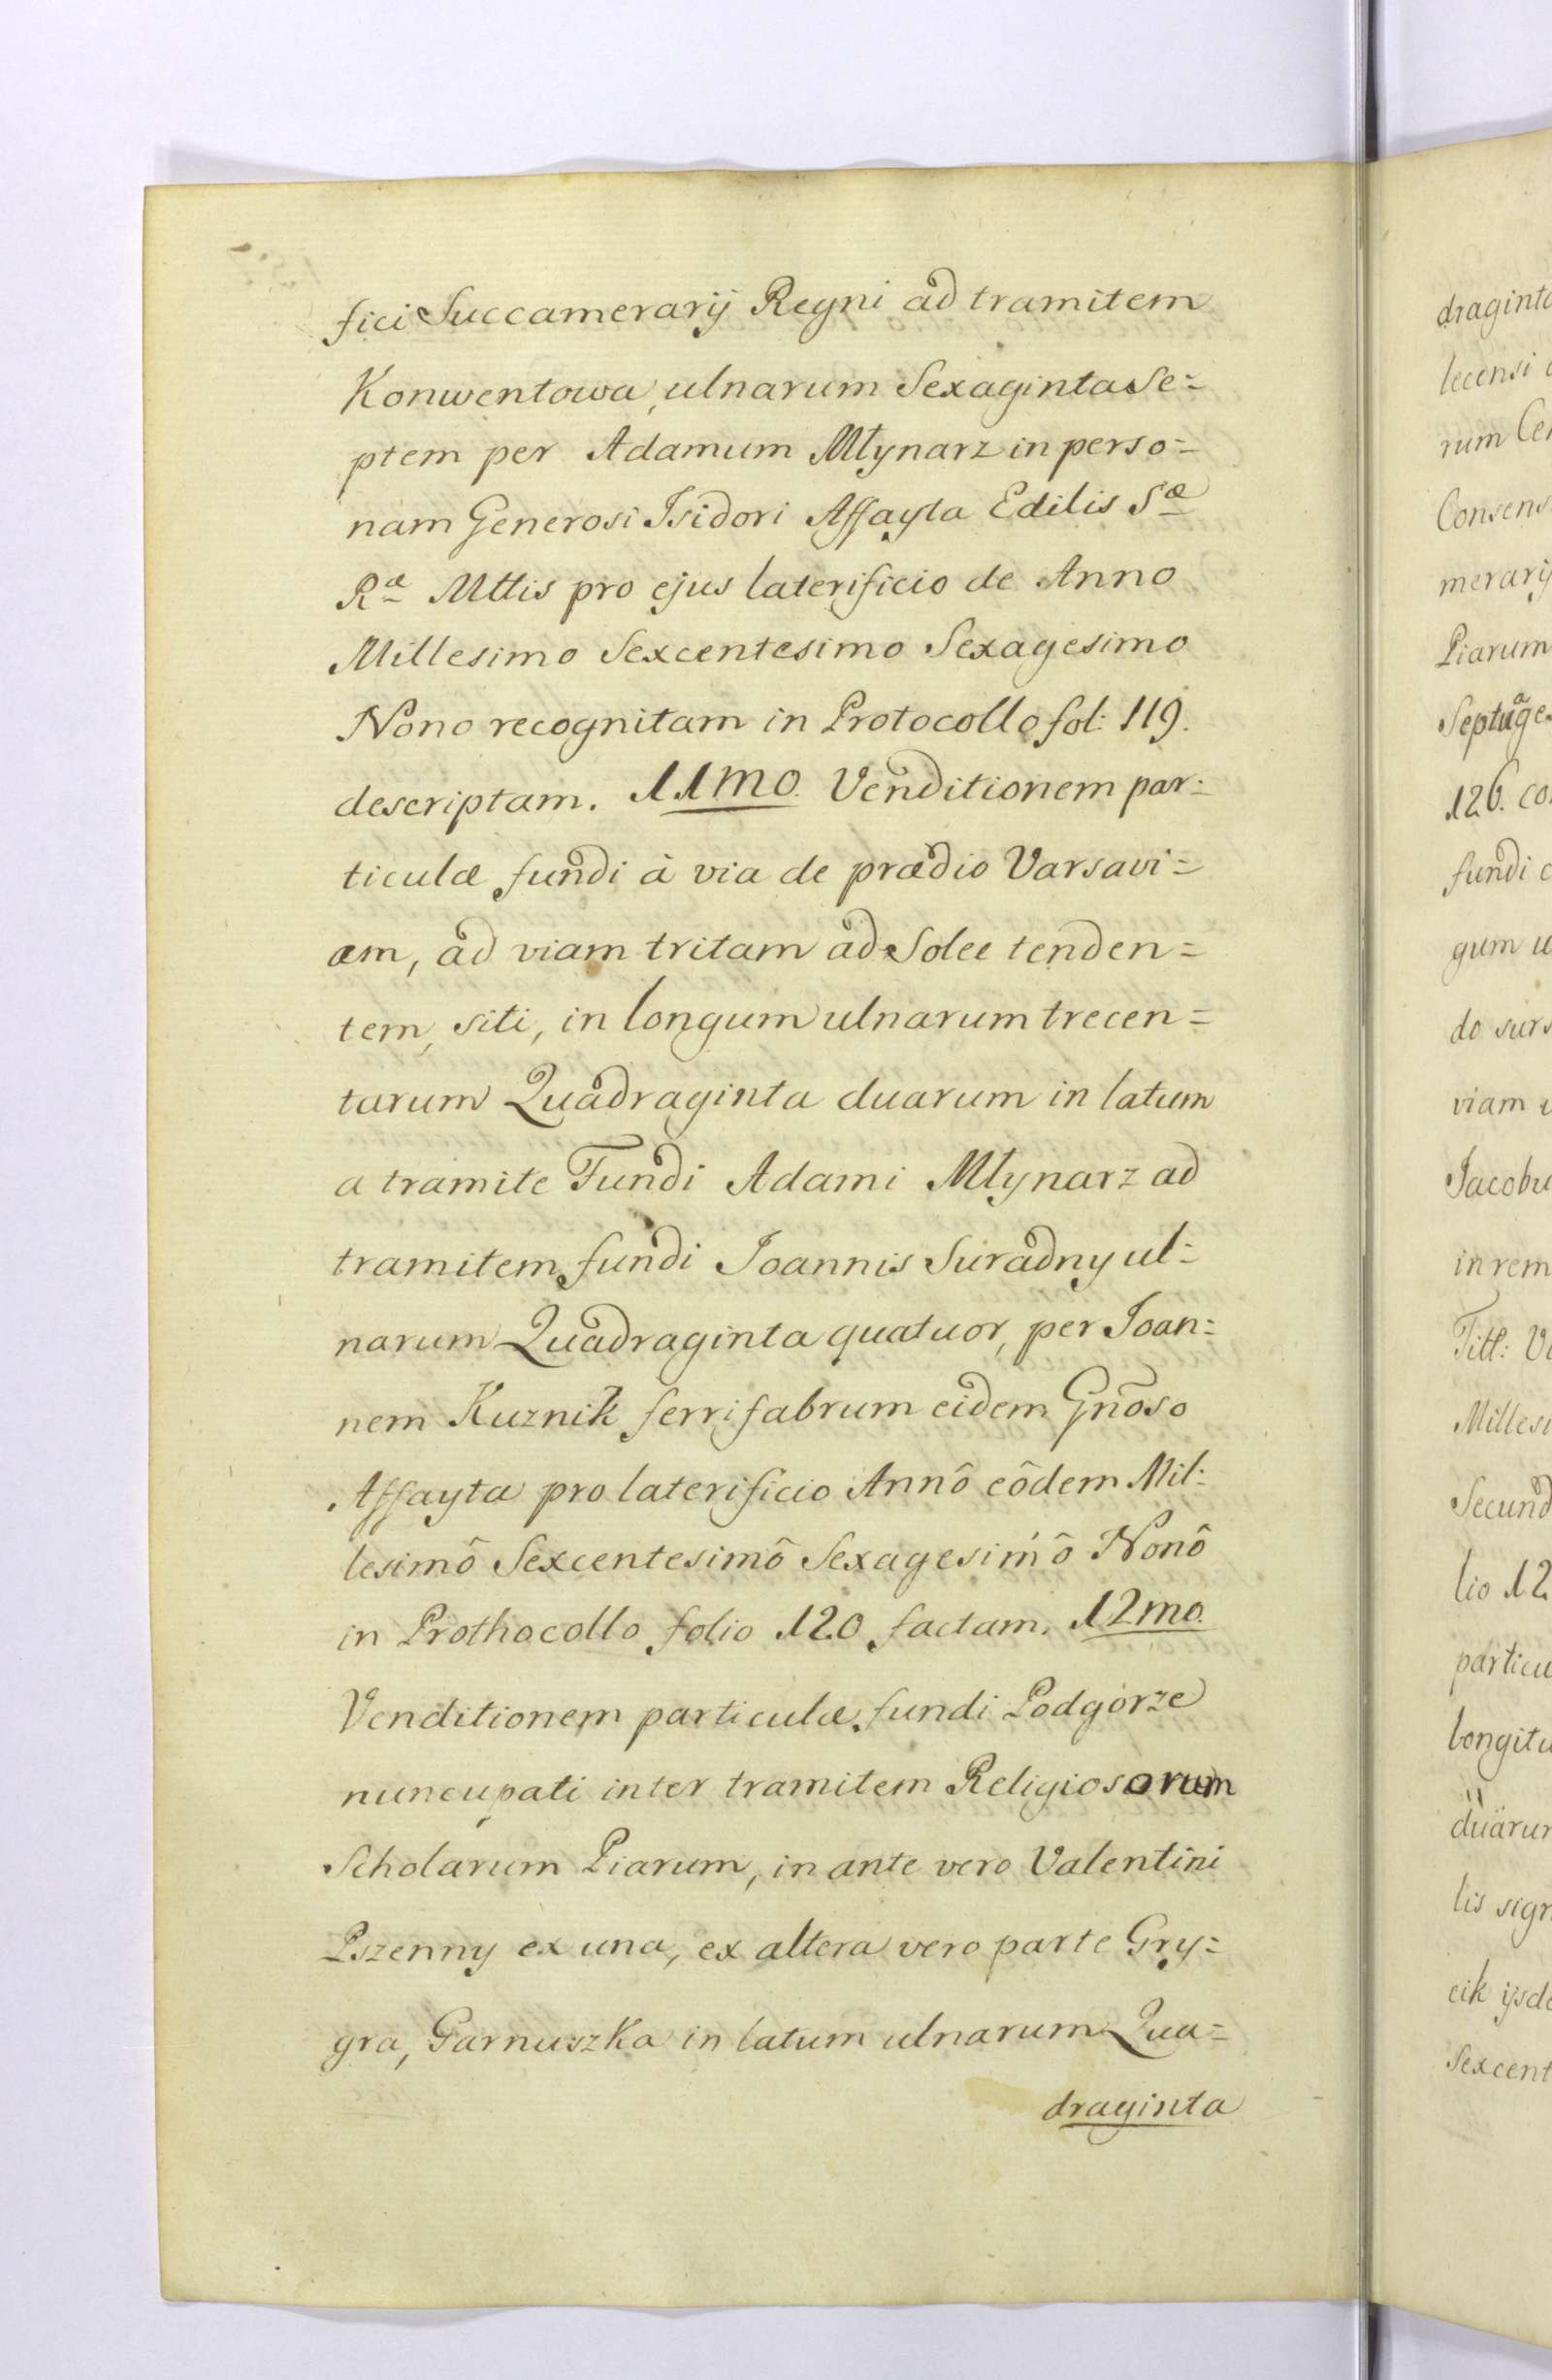 fici Succamerarij Regni ad tramitem
Konwentowa, ulnarum Sexaginta Se=
ptem per Adamum Młynarz in perso=
nam Generosi Isidori Affayta Edilis Sæ
Ræ Mttis pro ejus laterificio de Anno
Millesimo Sexcentesimo Sexagesimo
Nono recognitam in Protocollo fol: 119.
descriptam. 11mo. Venditionem par=
ticulæ fundi à via de prædio Varsavi=
am, ad viam tritam ad Solec tenden=
tem, siti, in longum ulnarum trecen=
tarum Quadraginta duarum in latum
a tramite Fundi Adami Młynarz ad
tramitem fundi Joannis Suradny ul=
narum Quadraginta quatuor, per Joan=
nem Kuznik ferrifabrum eidem Gnõso
Affayta pro laterificio Annô eôdem Mil=
lesimô Sexcentesimô Sexagesimô Nonô
in Prothocollo folio 120 factam. 12mo.
Venditionem particulæ fundi Podgórze
nuncupati inter tramitem Religiosorum
Scholarum Piarum, in ante vero Valentini
Pszenny ex una, ex altera vero parte Gry=
gra, Garnuszka in latum ulnarum Qua=
draginta
draginta
lecensi
rum
Consens
merarij
Piarum
Septuage
126. co
fundi c
gum u
do surs
viam
Jacobu
in rem
Titt: V
Millesi
Secund
lio 12
particu
longitu
düarum
lis sign
cik ijsde
Sexcent